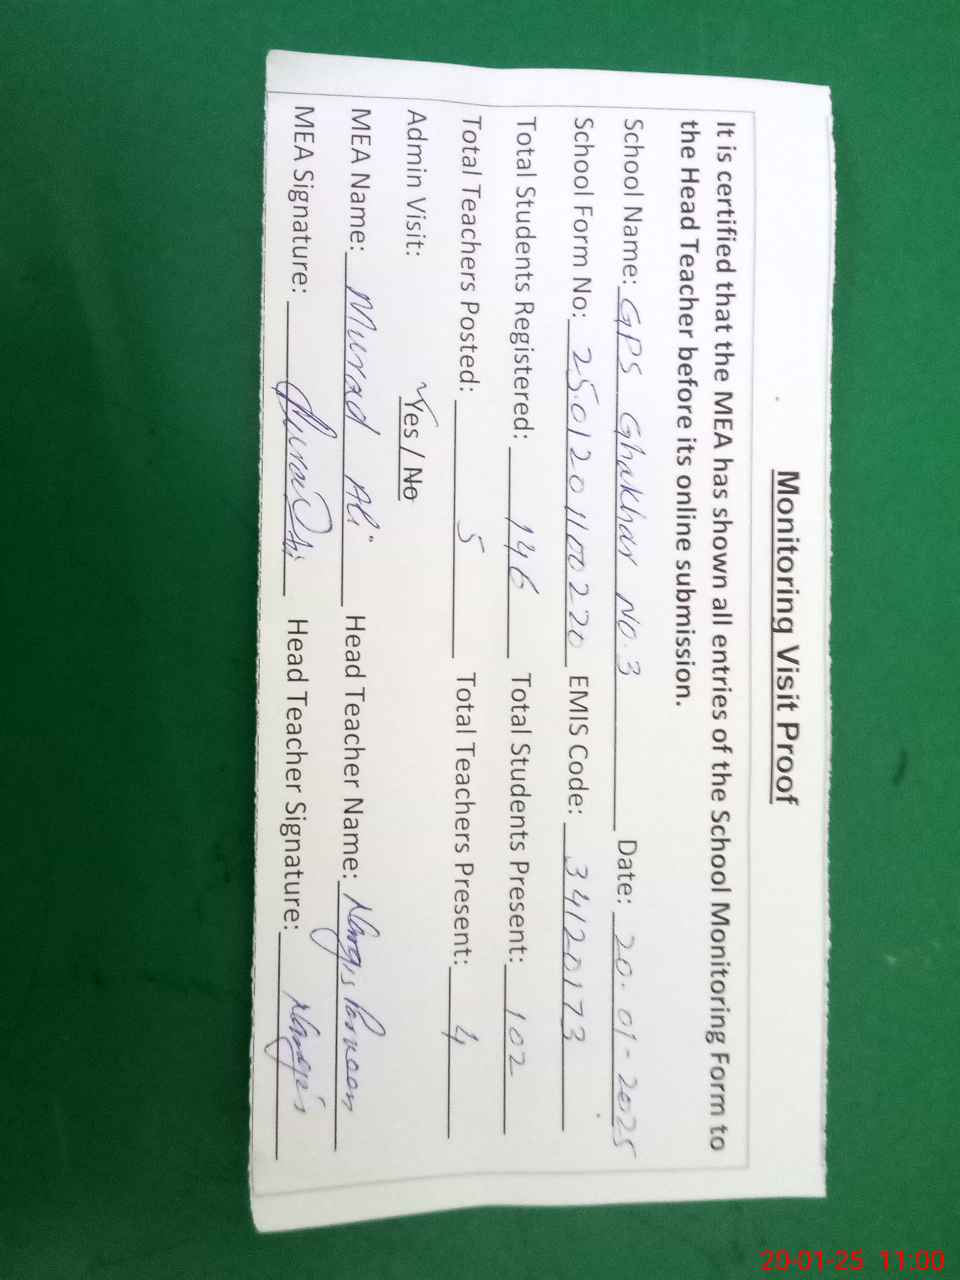 Monitoring Visit Proof
It is certified that the MEA has shown all entries of the School Monitoring Form to
the Head Teacher before its online submission.
School Name: GPS Ghakhar No. 3 Date: 20-01-2025
School Form No: 2501201100220 EMIS Code: 34120173
Total Students Registered: 146 Total Students Present: 102
Total Teachers Posted: 5 Total Teachers Present: 4
Admin Visit: Yes / No
MEA Name: Murad Ali Head Teacher Name: Nargis Parveen
MEA Signature: Murad Ali Head Teacher Signature: Nargis
20-01-25 11:00